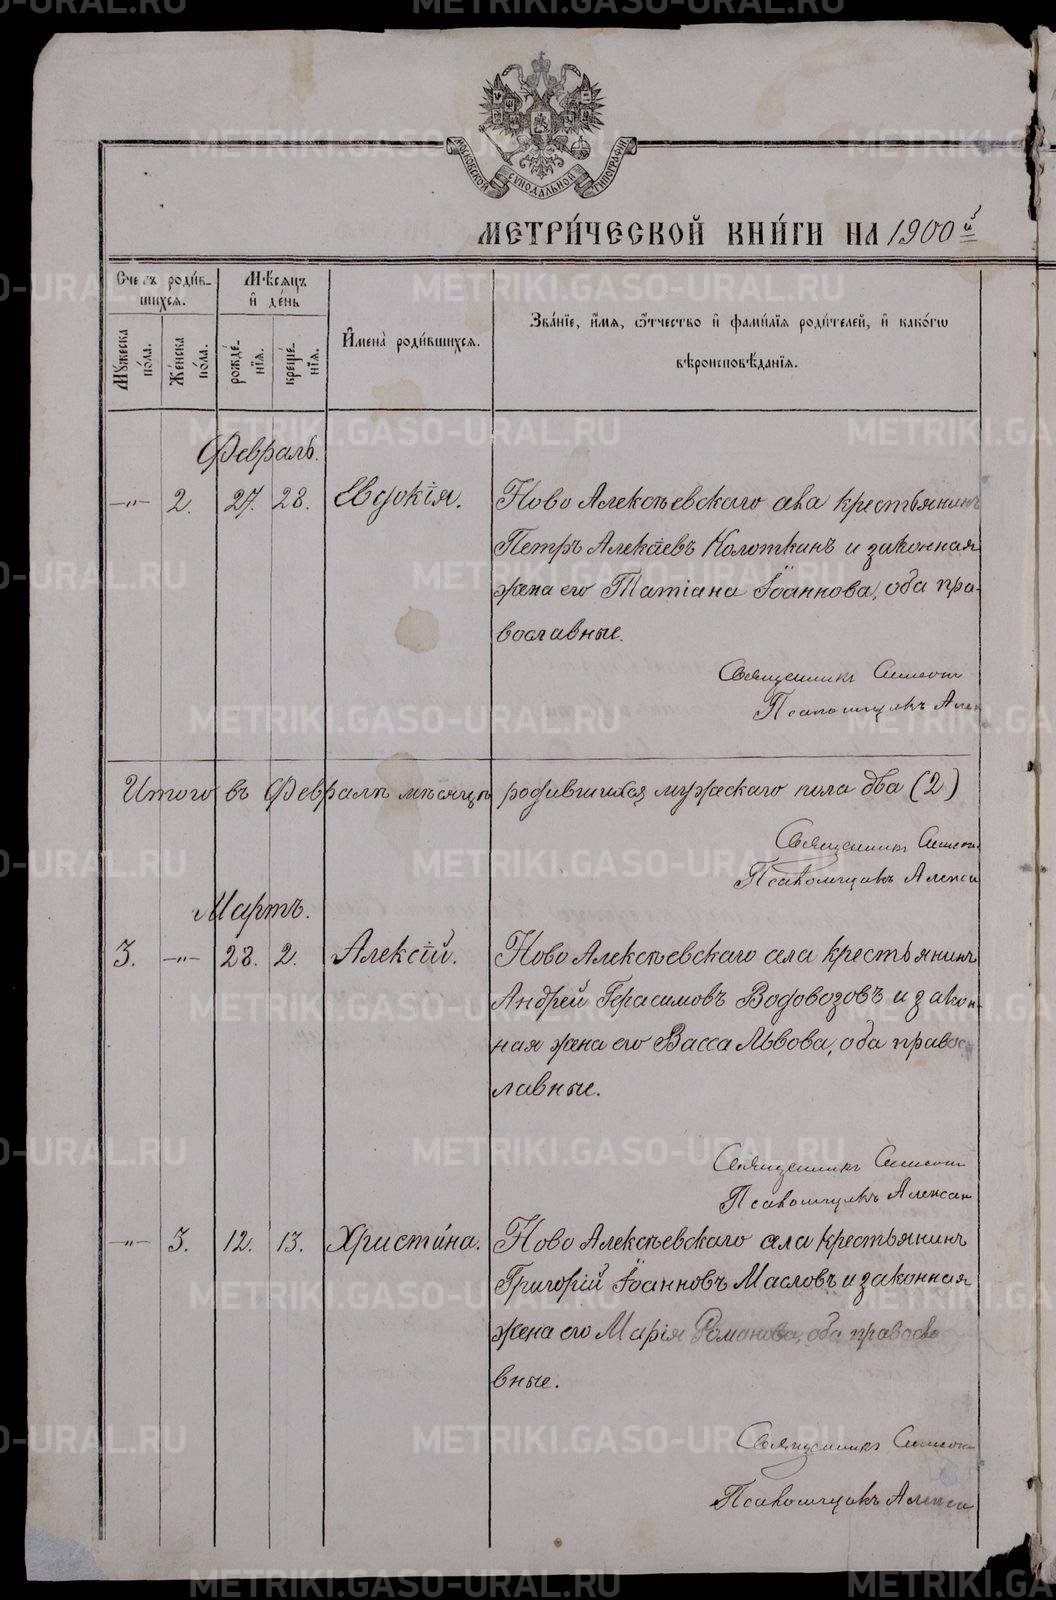 МОСКОВСКОЙ СѴНОДАЛЬНОЙ ТИПОГРАФІИ
МЕТРИ́ЧЕСКОЙ КНИ́ГИ НА 1900й
Счетъ роди́в-
шихся.
Мѣ́сяцъ
и҆ де́нь
И҆мена̀ роди́вшихся.
Зва́нїе, и҆́мя, ѻ҆́тчество и҆ фами́лїя роди́телей, и҆ како́гѡ
вѣроисповѣ́данїя.
Му́жеска
по́ла.
Же́нска
по́ла.
рожде́-
нїя.
креще́-
нїя.
Февраль.
-„- 2. 27. 28. Евдокія. Ново Алексѣевскаго села крестьянинъ
Петръ Алексѣевъ Колоткинъ и законная
жена его Татіана Іоаннова, оба пра-
вославные.
Священникъ Симеон
Псаломщикъ Алек
Итого въ Февралѣ мѣсяцѣ родившихся мужескаго пола два (2)
Священникъ Симеон
Псаломщикъ Алекса
Мартъ.
3. -„- 28. 2. Алексій. Ново Алексѣевскаго села крестьянинъ
Андрей Герасимовъ Водовозовъ и закон-
ная жена его Васса Львова, оба правос-
лавные.
Священникъ Симеон
Псаломщикъ Алексан
-„- 3. 12. 13. Христина. Ново Алексѣевскаго села крестьянинъ
Григорій Іоанновъ Масловъ и законная
жена его Марія Романова, оба правосла
вные.
Священникъ Симеон
Псаломщикъ Алекса
METRIKI.GASO-URAL.RU